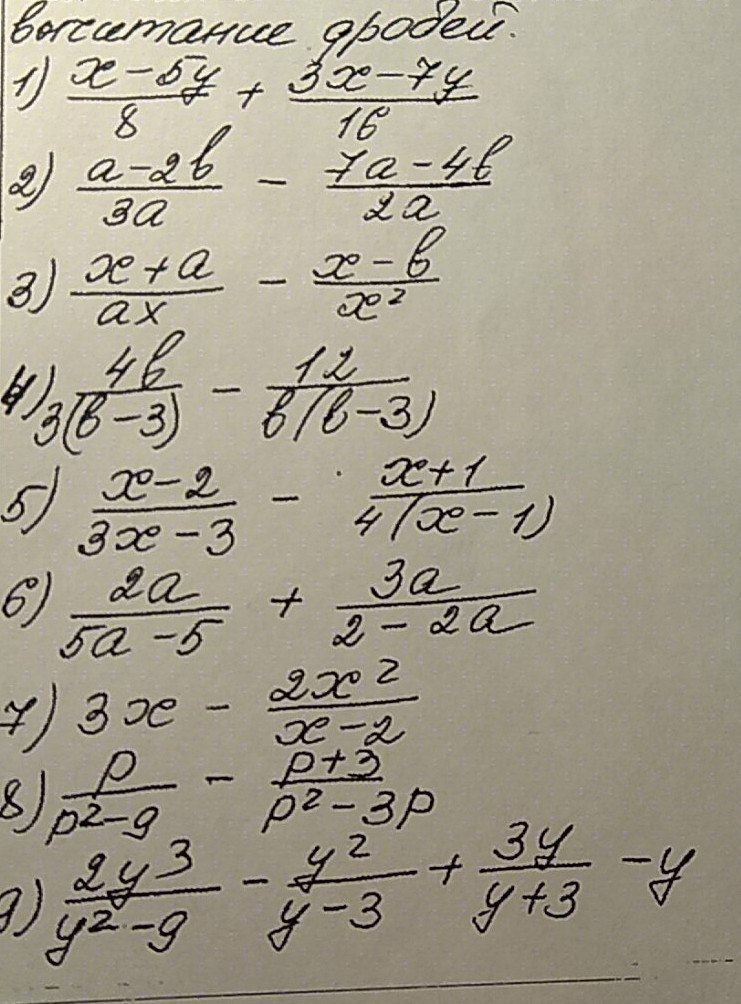 вычитание дробей.
1) (x-5y)/8 + (3x-7y)/16
2) (a-2b)/(3a) - (7a-4b)/(2a)
3) (x+a)/(ax) - (x-b)/x²
4) 4b/(3(b-3)) - 12/(b(b-3))
5) (x-2)/(3x-3) - (x+1)/(4(x-1))
6) 2a/(5a-5) + 3a/(2-2a)
7) 3x - 2x²/(x-2)
8) p/(p²-9) - (p+3)/(p²-3p)
9) 2y³/(y²-9) - y²/(y-3) + 3y/(y+3) - y